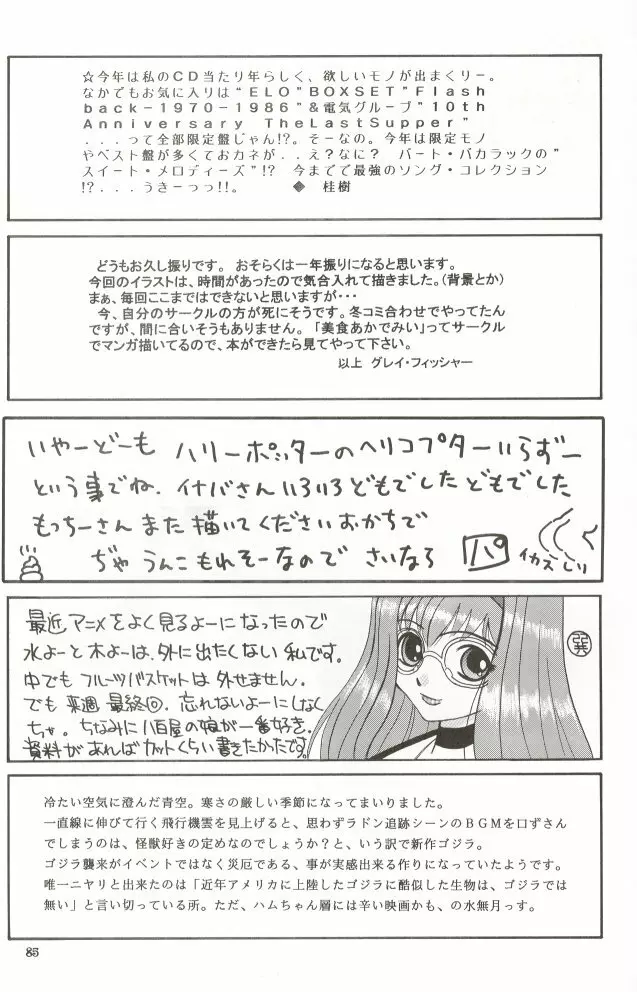 ☆今年は私のCD当たり年らしく、欲しいモノが出まくりー。
なかでもお気に入りは“ELO”BOXSET”Flash
back－1970－1986”&電気グループ”10th
Anniversary TheLastSupper”
...って全部限定盤じゃん!?。そーなの。今年は限定モノ
やベスト盤が多くておカネが..え?なに? バート・バカラックの”
スイート・メロディーズ”!? 今までで最強のソング・コレクション
!?...うきーっっ!!。 ◆ 桂樹
どうもお久し振りです。 おそらくは一年振りになると思います。
今回のイラストは、時間があったので気合入れて描きました。(背景とか)
まぁ、毎回ここまではできないと思いますが・・・
今、自分のサークルの方が死にそうです。冬コミ合わせでやってたん
ですが、間に合いそうもありません。「美食あかでみい」ってサークル
でマンガ描いてるので、本ができたら見てやって下さい。
以上 グレイ・フィッシャー
いやーどーも ハリーポッターのヘリコプターいらずー
という事でね. イナバさんいろいろどもでしたどもでした
もっちーさん また 描いてくださいおかちで
ぢゃ うんこ もれそーなので さいなら パ イカズしり
最近アニメをよく見るよーになったので
水よーと木よーは、外に出たくない 私です。
中でも フルーツバスケットは 外せません.
でも 来週 最終回. 忘れないよーにしなく
ちゃ。ちなみに八百屋の娘が一番好き.
資料があればカットくらい書きたかったです。
冷たい空気に澄んだ青空。寒さの厳しい季節になってまいりました。
一直線に伸びて行く飛行機雲を見上げると、思わずラドン追跡シーンのBGMを口ずさん
でしまうのは、怪獣好きの定めなのでしょうか?と、いう訳で新作ゴジラ。
ゴジラ襲来がイベントではなく災厄である、事が実感出来る作りになっていたようです。
唯一ニヤリと出来たのは「近年アメリカに上陸したゴジラに酷似した生物は、ゴジラでは
無い」と言い切っている所。ただ、ハムちゃん層には辛い映画かも、の水無月っす。
85